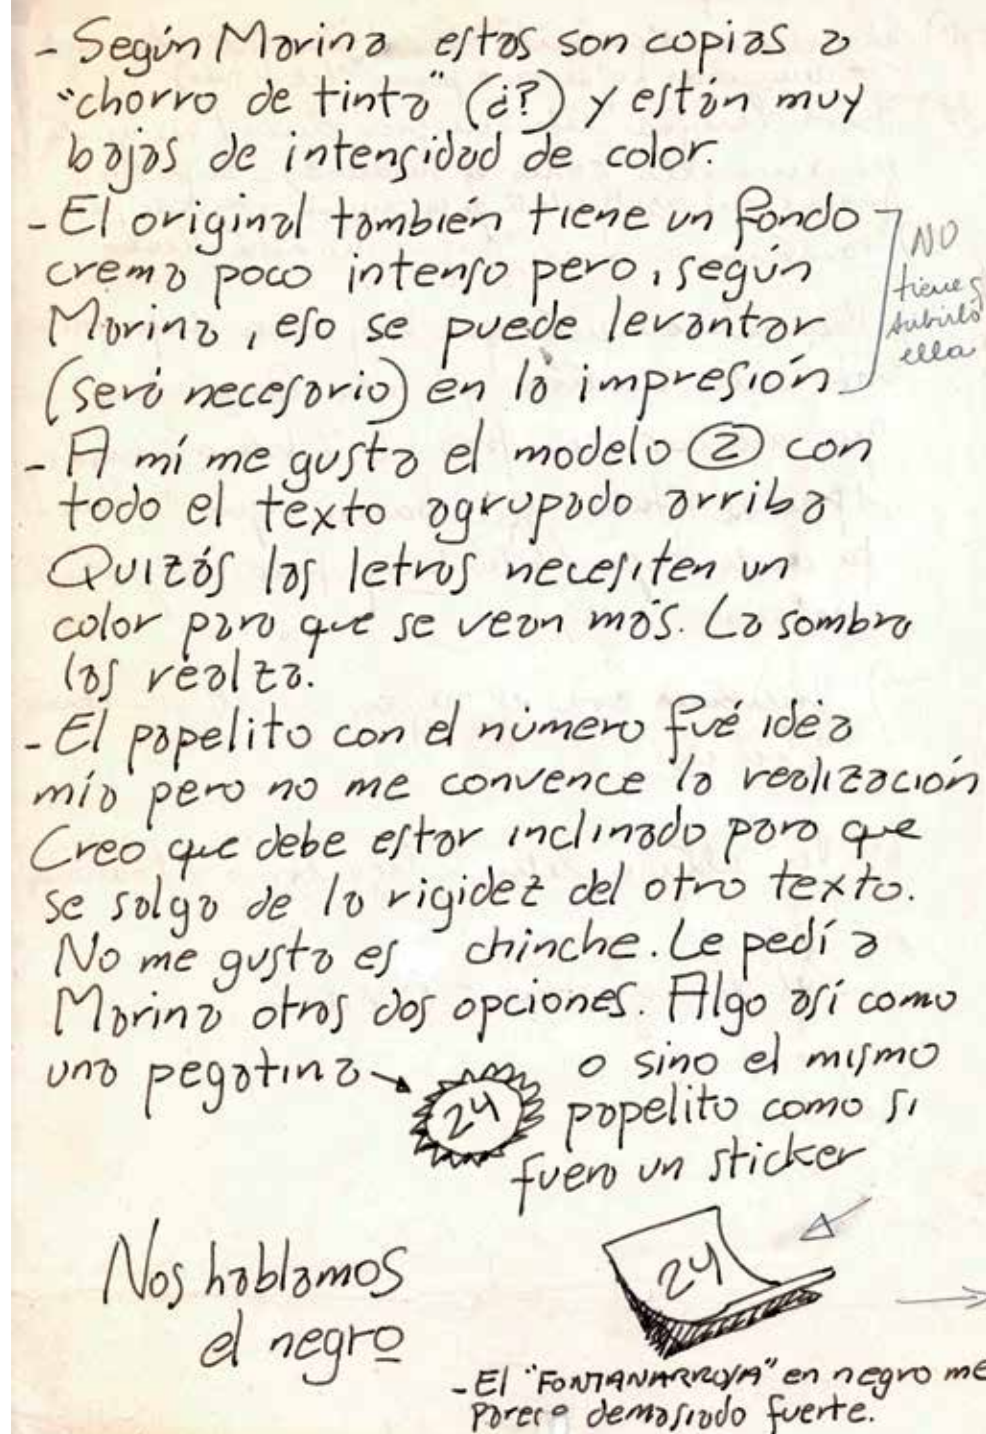 - Según Marina estas son copias a
"chorro de tinta" (¿?) y están muy
bajas de intensidad de color.
- El original también tiene un fondo
crema poco intenso pero, según
Marina, eso se puede levantar
(será necesario) en la impresión
NO
tienes
subirlo
ella
- A mí me gusta el modelo 2 con
todo el texto agrupado arriba
Quizás las letras necesiten un
color para que se vean más. La sombra
las realza.
- El papelito con el número fué idea
mía pero no me convence la realización
Creo que debe estar inclinado para que
se salga de la rigidez del otro texto.
No me gusta es chinche. Le pedí a
Marina otras dos opciones. Algo así como
una pegatina
24
o sino el mismo
papelito como si
fuera un sticker
24
Nos hablamos
el negro
- El "FONTANARROSA" en negro me
parece demasiado fuerte.